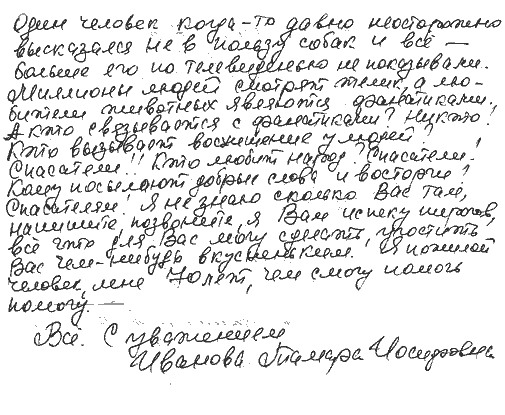 Один человек когда-то давно неосторожно
высказался не в пользу собак и всё —
больше его по телевиденью не показывали.
Миллионы людей смотрят телик, а лю-
бители животных являются фанатиками.
А кто связывается с фанатиками? Никто!
Кто вызывает восхищение у людей?
Спасатели!! Кто любит народ? Спасатели!
Кому посылают добрые слова и восторги?
Спасателям! Я не знаю сколько Вас там,
напишите, позвоните, я Вам испеку пирогов,
всё что для Вас могу сделать, угостить
Вас чем-нибудь вкусненьким. Я пожилой
человек, мне 70 лет, чем смогу помочь
помогу. —
Всё. С уважением
Иванова Тамара Иосифовна